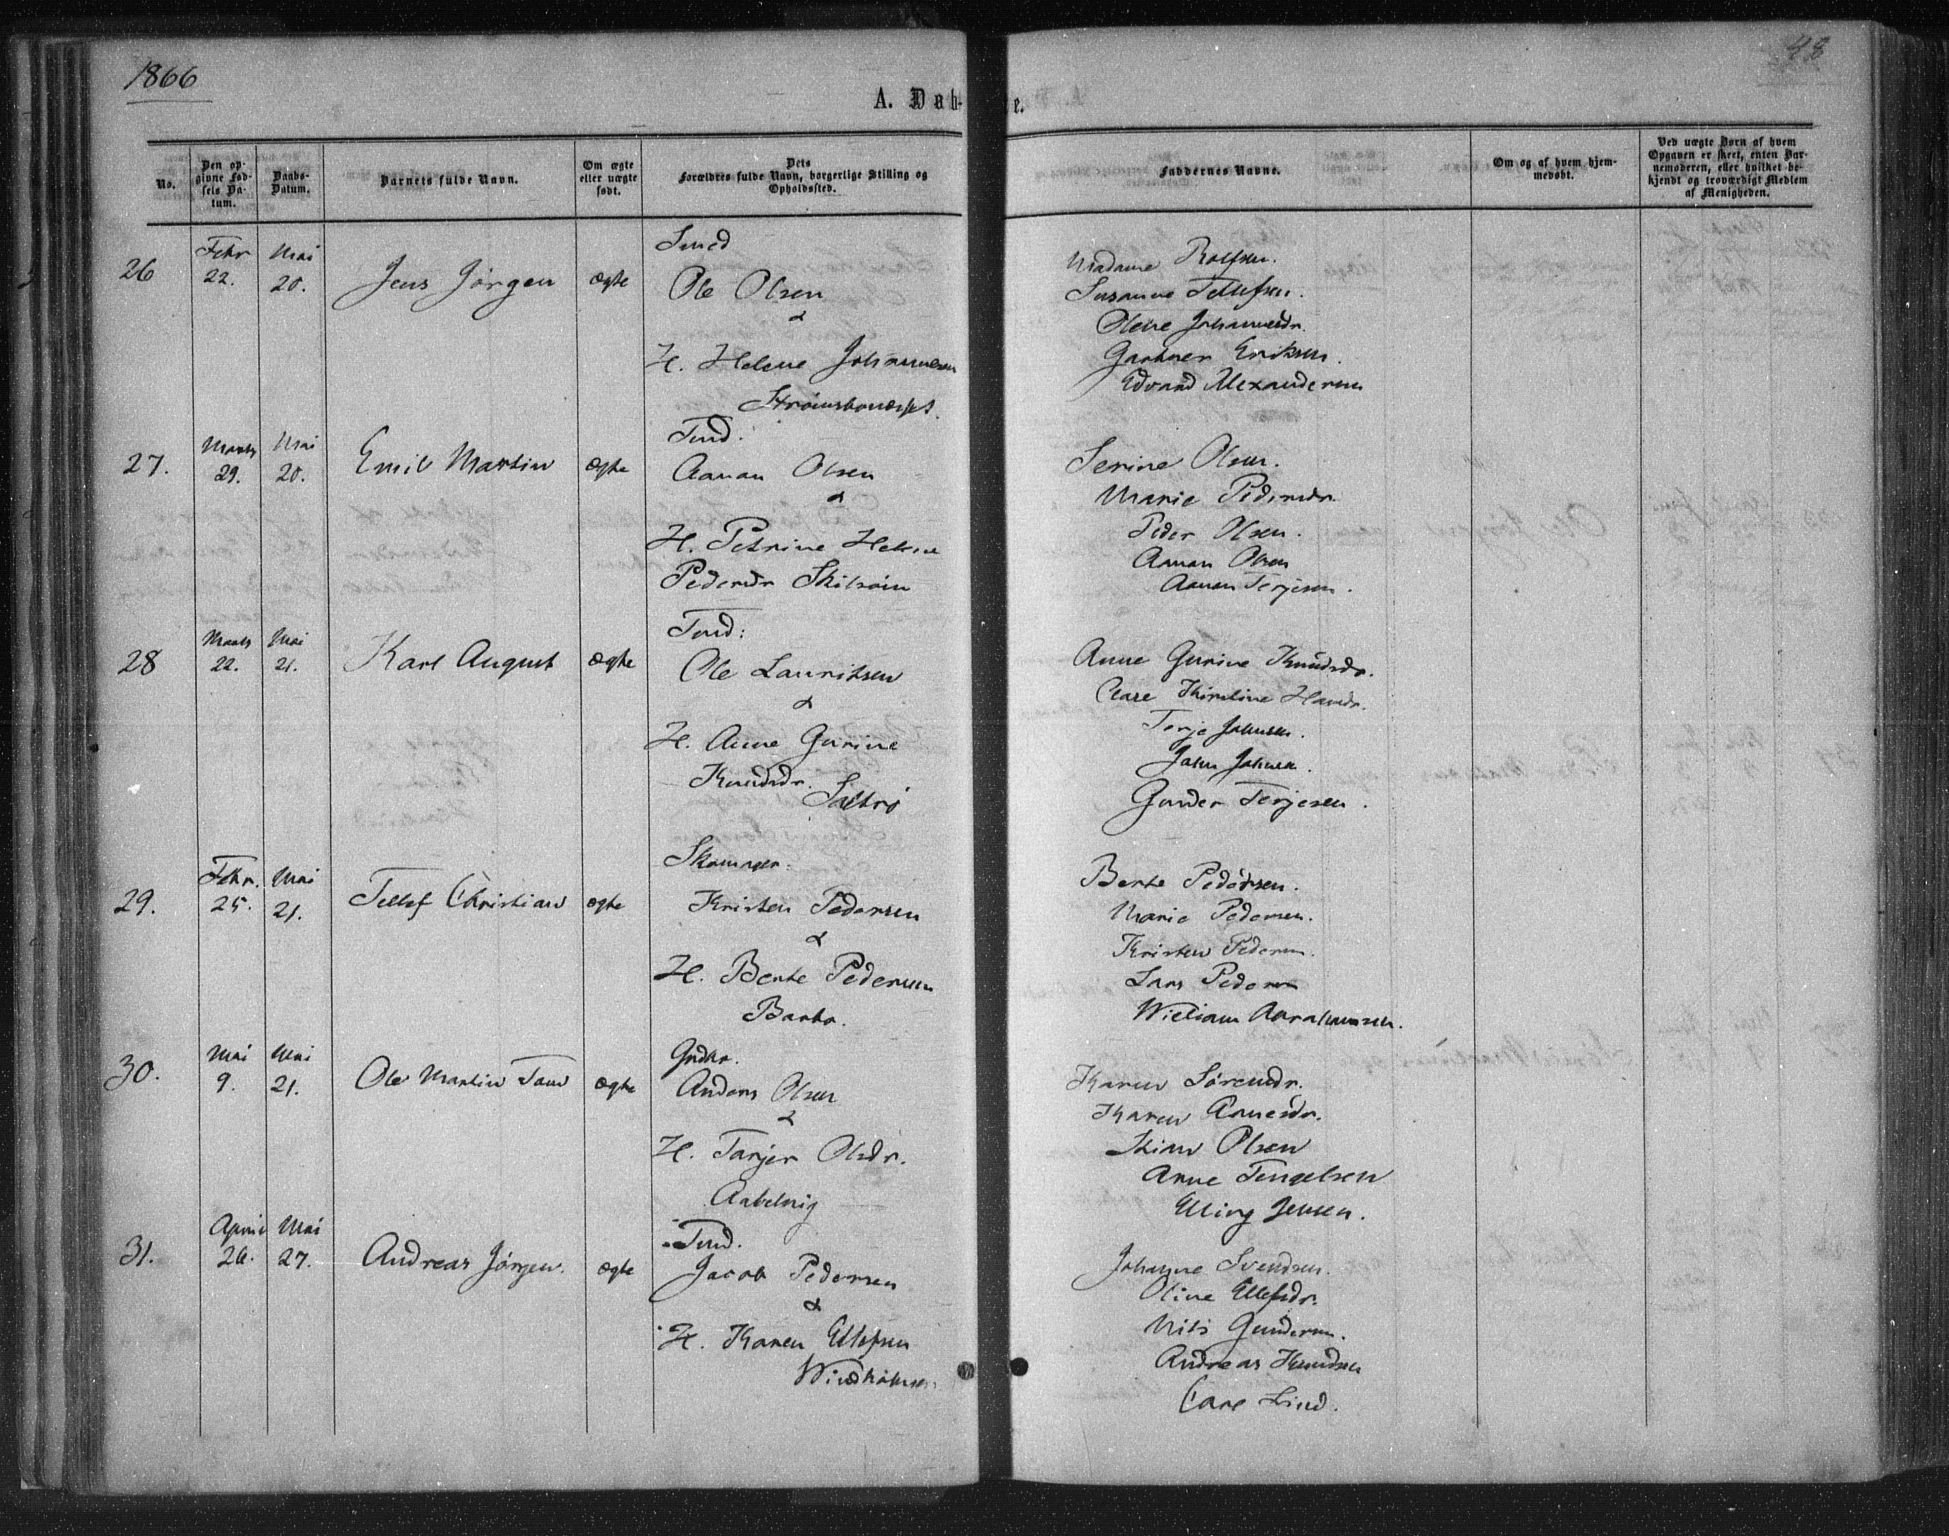 1866
48
A. Døb-
e.
No.
Den op-
givne Fød-
sels Da-
tum.
Daabs-
Datum.
Barnets fulde Navn.
Om ægte
eller uægte
født.
Dets
Forældres fulde Navn, borgerlige Stilling og
Opholdssted.
Faddernes Navne.
Om og af hvem hjem-
medøbt.
Ved uægte Børn af hvem
Opgaven er skeet, enten Bar-
nemoderen, eller hvilket be-
kjendt og troværdigt Medlem
af Menigheden.
26
Febr
22.
Mai
20.
Jens Jørgen
ægte
Smed
Ole Olsen
&
H. Helene Johannesen
Madame Rolfsen.
Susanne Tellefsen.
Olene Johannesdr.
Gartner Eriksen.
Edvard Alexandersen
27.
Marts
29.
Mai
20.
Emil Martin
ægte
Tmd.
Aanan Olsen
&
H. Petrine Helene
Pedersdr Skilsøm
Serine Olsen.
Marie Pedersdr.
Peder Olsen.
Aanan Olsen
Aanan Terjesen.
28
Marts
22.
Mai
21.
Karl August
ægte
Tmd:
Ole Lauritsen
&
H. Anne Gurine
Knudsdr.
Saltrø
Anne Gurine Knudsdr.
Terje Johnsen.
John Johnsen.
Gunder Terjesen.
29.
Febr.
25.
Mai
21.
Tellef Christian
ægte
Skomager.
Kristen Pedersen
&
H. Berte Pedersen
Barbo.
Berte Pedersen.
Marie Pedersen.
Kristen Pedersen.
Lars Pedersen
William Abrahamsen.
30.
Mai
9.
Mai
21.
Ole Martin
ægte
Grdbr.
Anders Olsen
&
H. Tarjer Olsdr.
Karen Sørensdr.
Karen Aanesdr.
Stian Olsen
Arne Tengelsen
Elling Jensen.
31.
April
26.
Mai
27.
Andreas Jørgen.
ægte
Tmd.
Jacob Pedersen
&
H. Karen Ellefsen
Johanne Svendsen.
Oline Ellefsdr.
Nils Gundersen.
Andreas Knudsen
Carl Lind.